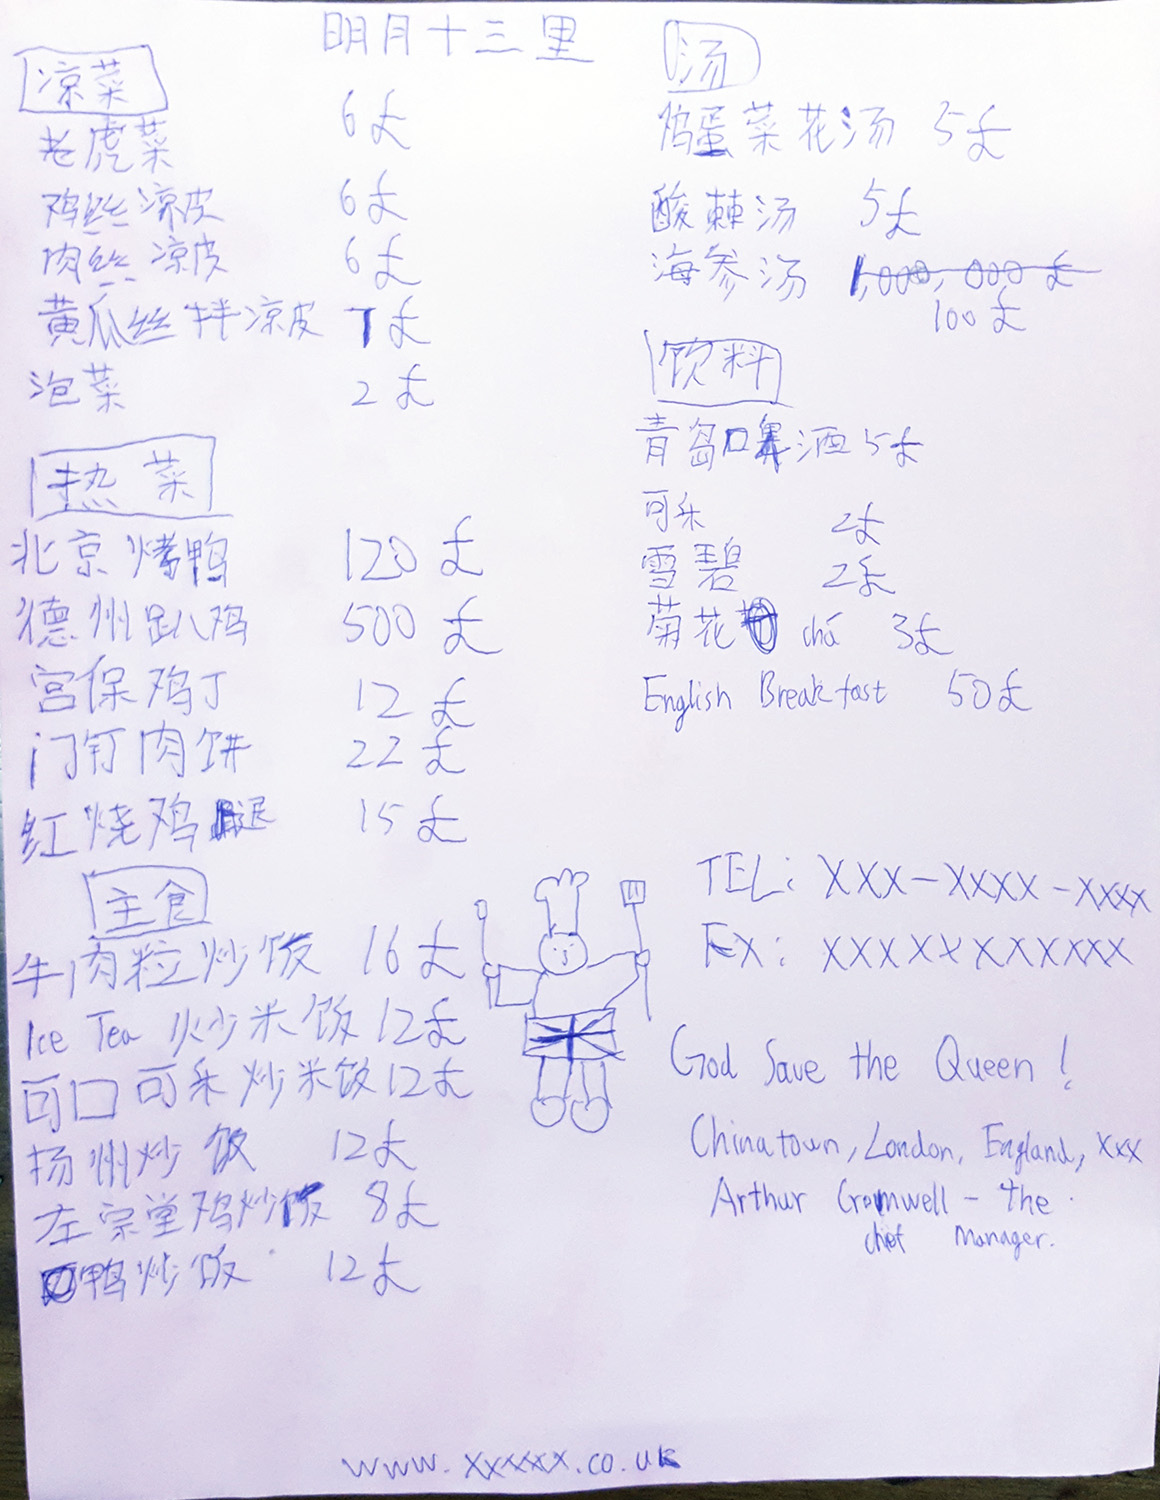 明月十三里
凉菜
老虎菜 6£
鸡丝凉皮 6£
肉丝凉皮 6£
黄瓜丝拌凉皮 7£
泡菜 2£
热菜
北京烤鸭 120£
德州趴鸡 500£
宫保鸡丁 12£
门钉肉饼 22£
红烧鸡腿 15£
主食
牛肉粒炒饭 16£
Ice Tea 炒米饭 12£
可口可乐炒米饭 12£
扬州炒饭 12£
左宗堂鸡炒饭 8£
鸭炒饭 12£
汤
鸡蛋菜花汤 5£
酸棘汤 5£
海参汤 1,000,000£
100£
饮料
青岛啤酒 5£
可乐 2£
雪碧 2£
菊花 chá 3£
English Breakfast 50£
TEL: XXX-XXXX-XXXX
FX: XXXXXXXXXXX
God Save the Queen!
Chinatown, London, England, XXX
Arthur Cromwell - the
chef manager.
www.xxxxxx.co.uk